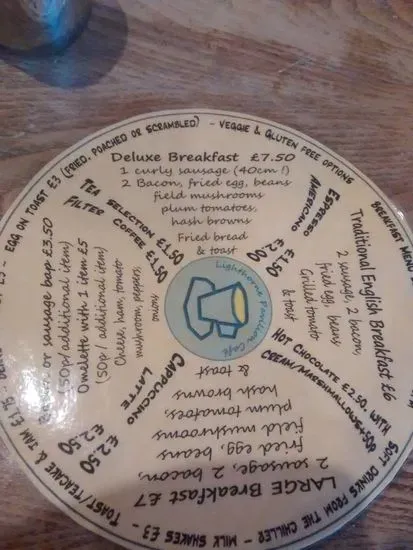 EGG ON TOAST £3 (FRIED, POACHED OR SCRAMBLED) - VEGGIE & GLUTEN FREE OPTIONS
BREAKFAST MENU
SOFT DRINKS FROM THE CHILLER - MILK SHAKES £3 - TOAST/TEACAKE & JAM £1.75
Deluxe Breakfast £7.50
1 curly sausage (40cm!)
2 Bacon, fried egg, beans
field mushrooms
plum tomatoes,
hash browns
Fried bread
& toast
ESPRESSO £1.50
AMERICANO £2.00
Traditional English Breakfast £6
2 sausage, 2 bacon,
fried egg, beans
Grilled tomato
& toast
HOT CHOCOLATE £2.50, WITH
CREAM/MARSHMALLOWS +50p
LARGE Breakfast £7
2 sausage, 2 bacon,
fried egg, beans
field mushrooms
plum tomatoes,
hash browns
& toast
CAPPUCCINO £2.50
LATTE £2.50
or sausage bap £3.50
(50p/additional item)
Omelette with 1 item £5
(50p/additional item)
Cheese, ham, tomato
mushroom, peppers,
onions
TEA SELECTION £1.50
FILTER COFFEE £1.50
Lighthorne Pavilion Café